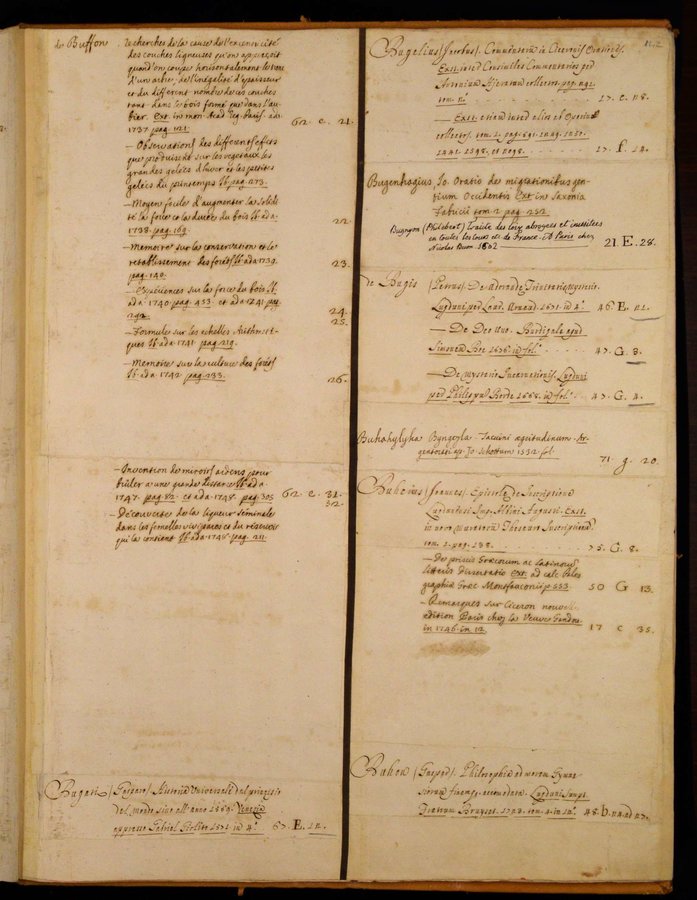 de Buffon. recherches de la cause de l'excentricité
des couches ligneuses qu'on apperçoit
quand on coupe horisontalement le tronc
d'un arbre, de l'inégalité d'épaisseur
et du different nombre de ces couches
tant dans le bois formé que dans l'au-
bier. Ext. in mem. Acad. Reg. Paris. ad a.
1737. pag. 121. 62. C. 21.
— Observations des differents effets
que produisent sur les vegetaux les
grandes gelées d'hiver et les petites
gelées du printemps Ib. pag. 273.
— Moyen facile d'augmenter la solidi-
té la force et la durée du bois Ib. ad a.
1738. pag. 169. 22.
— Memoire sur la conservation et le
retablissement des forests Ib. ad a 1739.
pag. 140. 23.
— Experiences sur la force du bois Ib.
ad a. 1740. pag. 453. et ad a. 1741. pag.
292. 24.
25.
— Formules sur les echelles Arithmeti-
ques Ib. ad a. 1741. pag. 219.
— Memoire sur la culture des forests
Ib. ad a. 1742. pag. 233. 26.
— Invention de miroirs ardens pour
brûler a une grande distance Ib. ad a.
1747. pag. 82. et ad a. 1748. pag. 305 62. C. 31.
32.
— Découverte de la liqueur séminale
dans les femelles vivipares et du réservoir
qui la contient Ib. ad a. 1748. pag. 211.
Bugati (Gasparo) Historia Universale dal principio
del mondo sino all' anno 1569. Venezia
appresso Gabriel Giolito 1571. in 4.° 67. E. 12.
142
Bugelius (Jacobus). Commentum in Ciceronis Orationes.
Ext. inter Consimiles Commentarios per
collectos. pag. 192.
tom. 17. C. 18.
— Ext. etiam inter alios et Opera
collectos. tom. 2. pag. 691.
1441. 1598. et 1098. 17. F. 14.
Bugenhagius, Jo. Oratio de migrationibus gen-
tium Occidentis Ext. in Saxonia
Fabricii tom. 2. pag. 252
Bugnyon (Philebert) Traité des loix abrogées et inusitées
en toutes les cours etc. de France. A Paris chez
Nicolas Buon. 1602 21. E. 28.
de Bugis (Petrus). De Adorando Trinitatis mysterio.
Lugduni per Laur. Arnaud. 1671. in 4.° 46. E. 11.
— De Deo Uno. Burdigalæ apud
Simonem Boe 1676. in fol. 47. G. 3.
— De mysterio Incarnationis. Lugduni
per Philippum Borde 1668. in fol. 47. G. 4.
Buhahylyha Byngezla. Tacuini ægritudinum. Ar-
gentorati ap. Jo. Schottum 1532. fol.
71. g. 20.
Buherius (Joannes) Epistola de Inscriptione
Lugdunensi Imp. Albini Augusti. Ext.
in novo Muratorii Thesauro Inscriptionum
tom. 1. pag. 238. 75. G. 8.
— De priscis Græcorum ac Latinorum
litteris Dissertatio ext. ad calc. Palæo-
graphiæ Græc. Montfauconii p. 553. 50 G 13.
— Remarques sur Ciceron nouvelle
edition Paris chez la Veuve Gandouin
in 1746. in 12. 17 C 35.
Buhon (Gaspar). Philosophia ad morem Gymna-
siorum finemq. accomodata. Lugduni Sumpt.
Fratrum Bruyset. 1723. tom. 4. in 12.° 48. b. 14. ad 17.